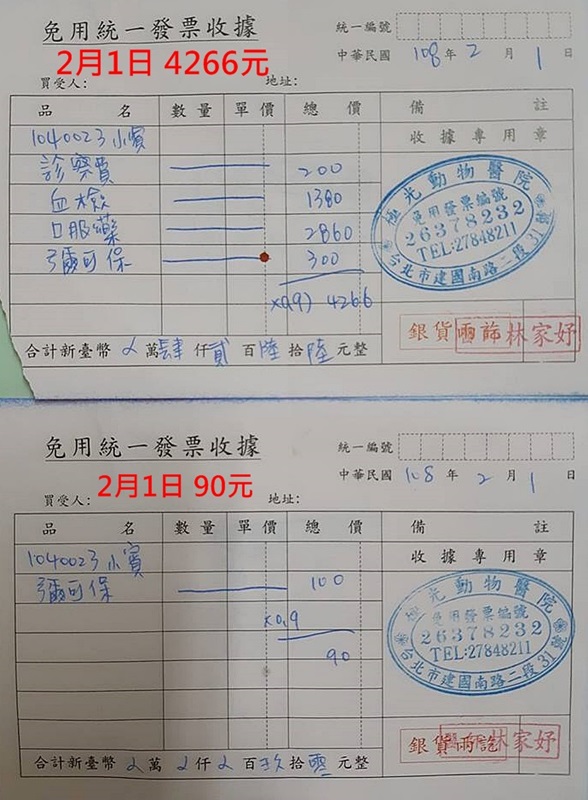 免用統一發票收據
統一編號
中華民國 108 年 2 月 1 日
2月1日 4266元
買受人: 地址:
品名 數量 單價 總價 備註
1040023 小賓 收據專用章
診察費 200
血檢 1380
口服藥 2860
彌可保 300
x0.9) 4266
極光動物醫院
免用發票編號
26378232
TEL:27848211
台北市建國南路二段31號
合計新臺幣 萬 肆 仟 貳 百 陸 拾 陸 元整
銀貨兩訖 林家妤
免用統一發票收據
統一編號
中華民國 108 年 2 月 1 日
2月1日 90元
買受人: 地址:
品名 數量 單價 總價 備註
1040023 小賓 收據專用章
彌可保 100
x0.9
90
極光動物醫院
免用發票編號
26378232
TEL:27848211
台北市建國南路二段31號
合計新臺幣 萬 仟 百 玖 拾 零 元整
銀貨兩訖 林家妤